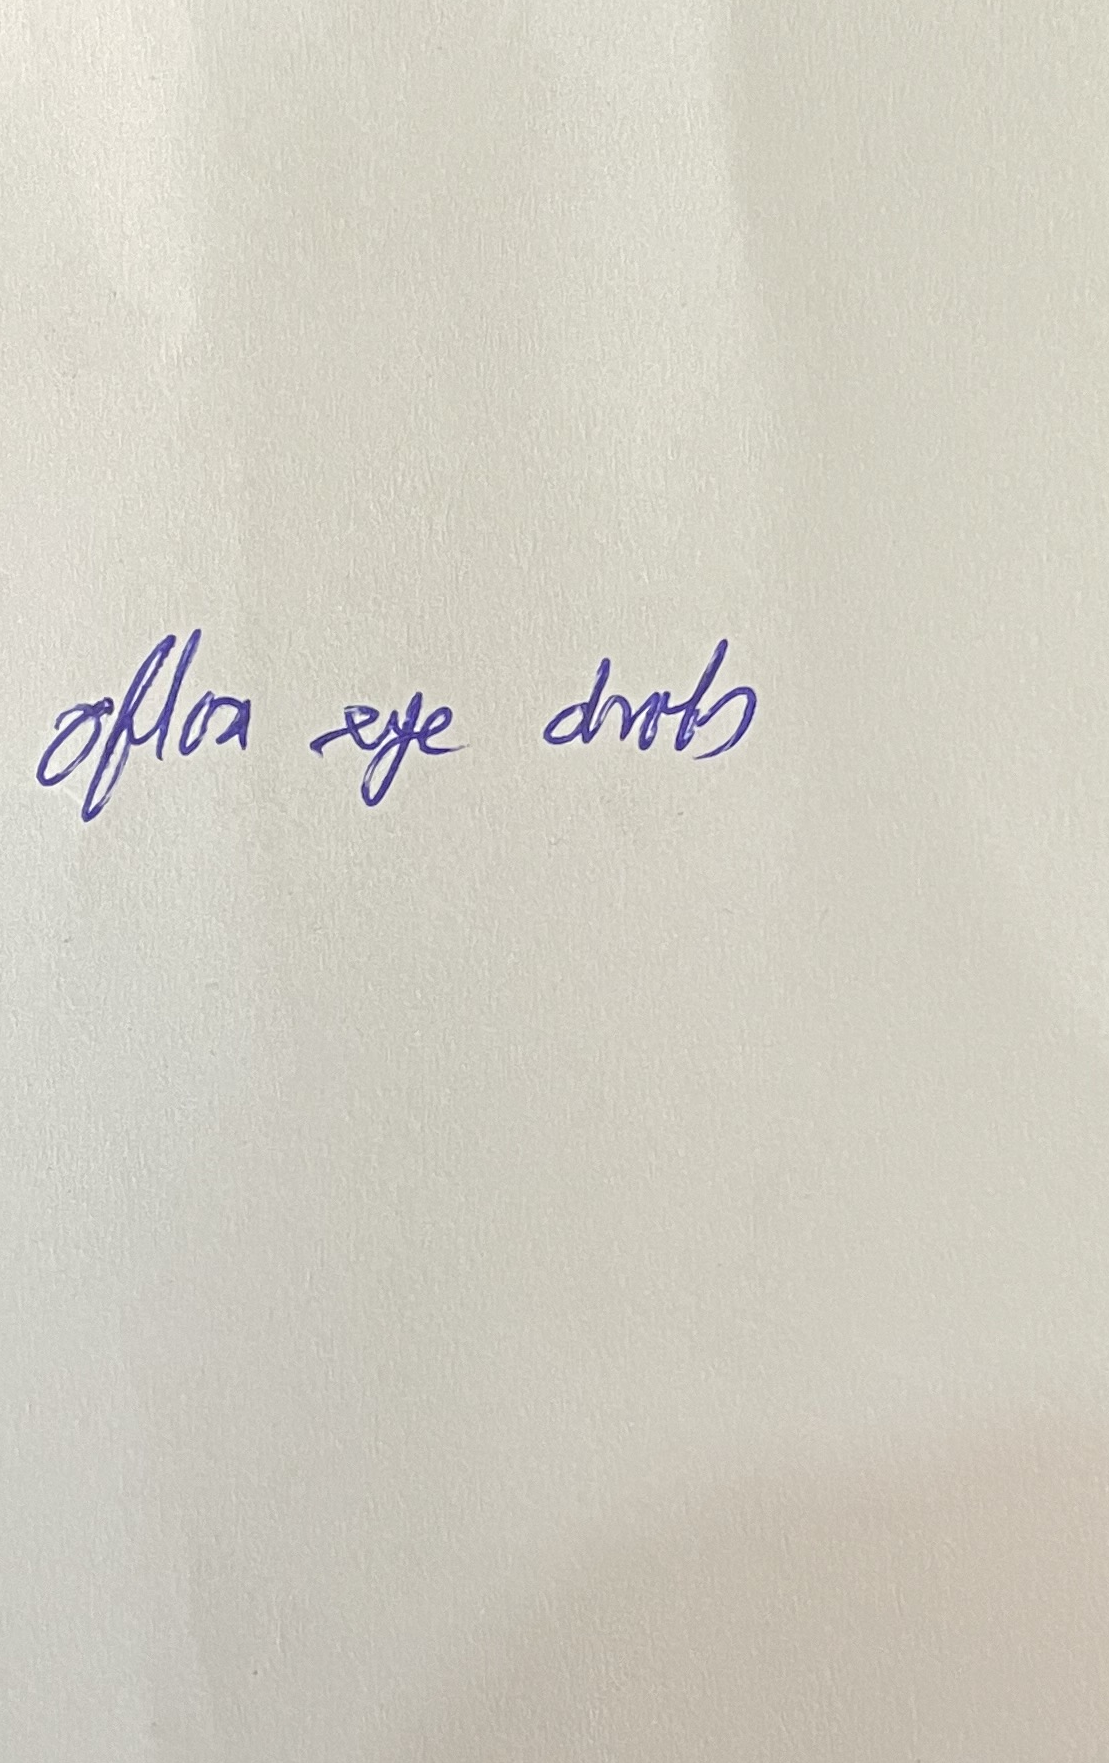 oflox eye drops